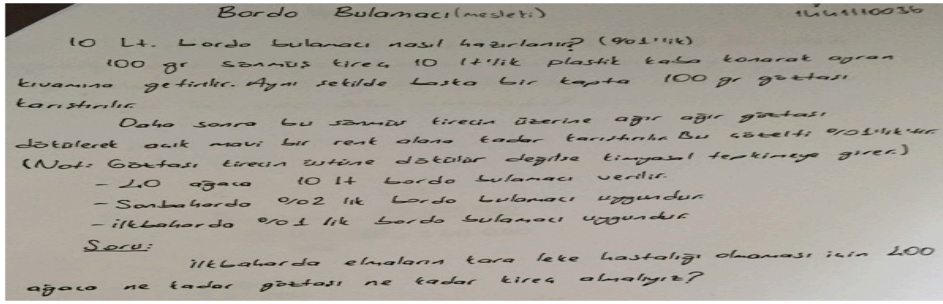 Bordo Bulamacı (mesleki)
14141110036
10 Lt. bordo bulamacı nasıl hazırlanır? (%01'lik)
100 gr sönmüş kireç 10 lt'lik plastik kaba konarak ayran
kıvamına getirilir. Aynı şekilde başka bir kapta 100 gr göztaşı
karıştırılır.
Daha sonra bu sönmüş kirecin üzerine ağır ağır göztaşı
dökülerek açık mavi bir renk alana kadar karıştırılır. Bu çözelti %01'lik'tir.
(Not: Göztaşı kirecin üstüne dökülür değilse kimyasal tepkimeye girer.)
- 20 ağaca 10 lt bordo bulamacı verilir.
- Sonbaharda %02 lik bordo bulamacı uygundur.
- ilkbaharda %01 lik bordo bulamacı uygundur.
Soru:
ilkbaharda elmaların kara leke hastalığı olmaması için 200
ağaca ne kadar göztaşı ne kadar kireç almalıyız?